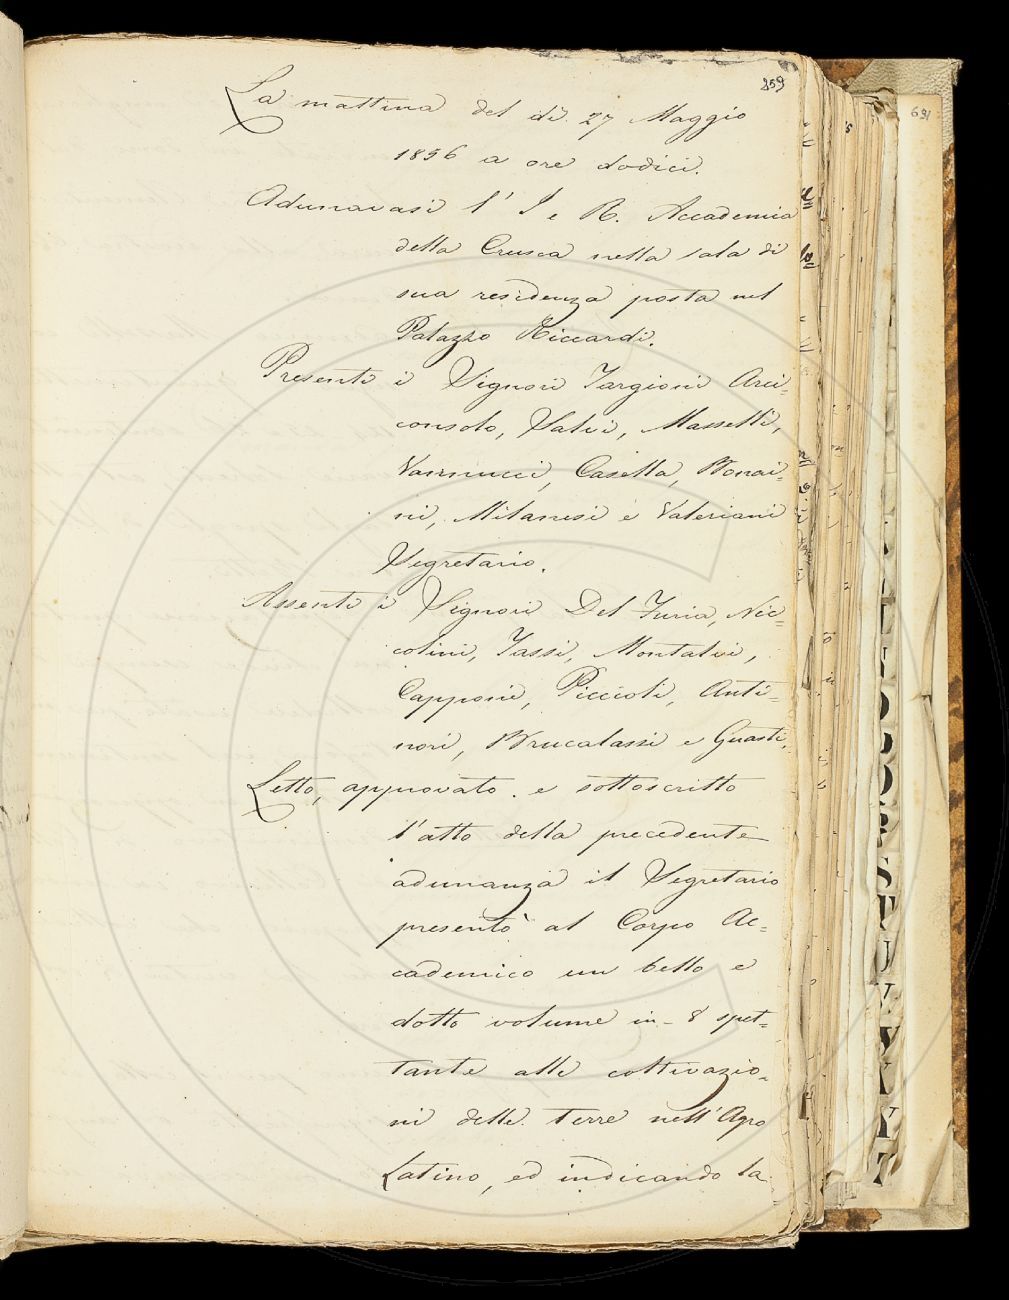 859
La mattina del dì 27 Maggio
1856 a ore dodici.
Adunavasi l' I e R. Accademia
della Crusca nella sala di
sua residenza posta nel
Palazzo Riccardi.
Presenti i Signori Targioni Arci-
consolo, Salvi, Masselli,
Vannucci, Casella, Bonai-
ni, Milanesi e Valeriani
Segretario.
Assenti i Signori Del Furia, Nic-
colini, Tassi, Montalvi,
Capponi, Piccioli, Anti-
nori, Brucalassi e Guasti.
Letto, approvato. e sottoscritto
l'atto della precedente
adunanza il Segretario
presentò al Corpo Ac-
cademico un bello e
dotto volume in-8 spet-
tante alle coltivazio-
ni delle terre nell'Agro
Latino, ed indicando la
691
S
T
U
V
X
Y